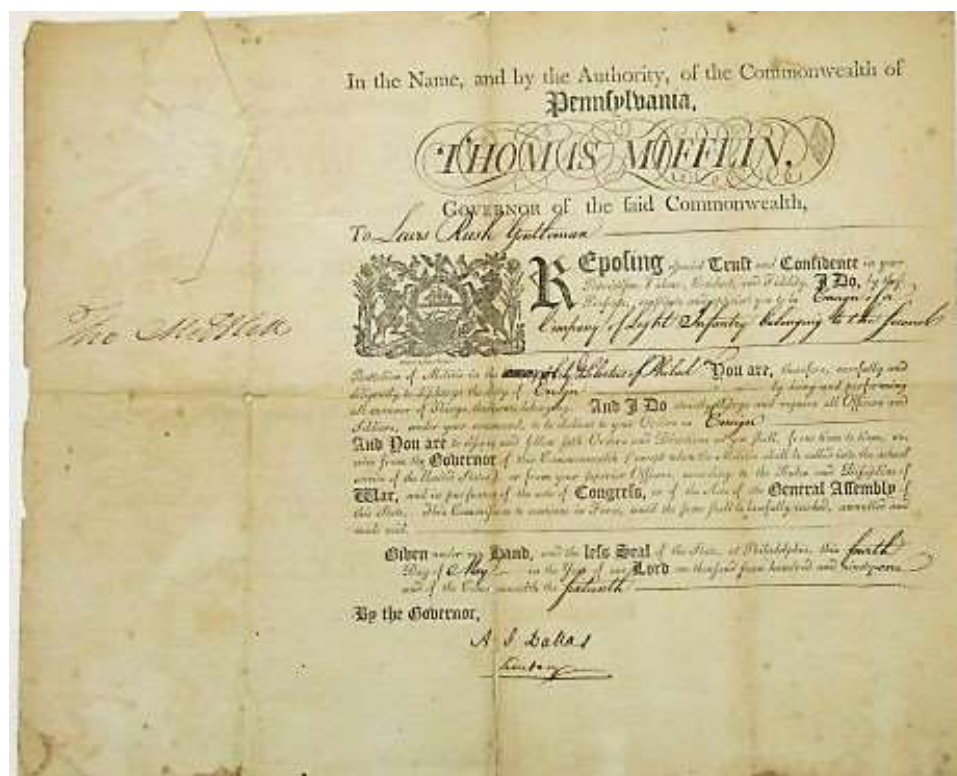 In the Name, and by the Authority, of the Commonwealth of
Pennſylvania.
THOMAS MIFFLIN,
GOVERNOR of the ſaid Commonwealth,
To Lewis Rush Gentleman
REpoſing eſpecial Truſt and Confidence in your
Patriotiſm, Valour, Conduct, and Fidelity, I Do, by theſe
Preſents, you to be Ensign of a
Company of Light Infantry belonging to the second
Tho Mifflin
Battalion of Militia in the City & Liberties of Philad You are, therefore, carefully and
diligently to diſcharge the duty of Ensign by doing and performing
all manner of Things thereunto belonging. And I Do ſtrictly charge and require all Officers and
Soldiers, under your command, to be obedient to your Orders as Ensign
And You are to obſerve and follow ſuch Orders and Directions as you ſhall, from time to time, re-
ceive from the Governor of this Commonwealth (except when the Militia ſhall be called into the actual
ſervice of the United States) or from your ſuperior Officers, according to the Rules and Diſcipline of
War, and in purſuance of the acts of Congreſs, or of the Acts of the General Aſſembly of
this State. This Commiſſion to continue in Force, until the ſame ſhall be lawfully revoked, annulled and
made void.
Given under my Hand, and the leſs Seal of the State, at Philadelphia, this fourth
Day of May in the Year of our Lord one thouſand ſeven hundred and
and of the Commonwealth the
By the Governor,
A J Dallas
Secretary